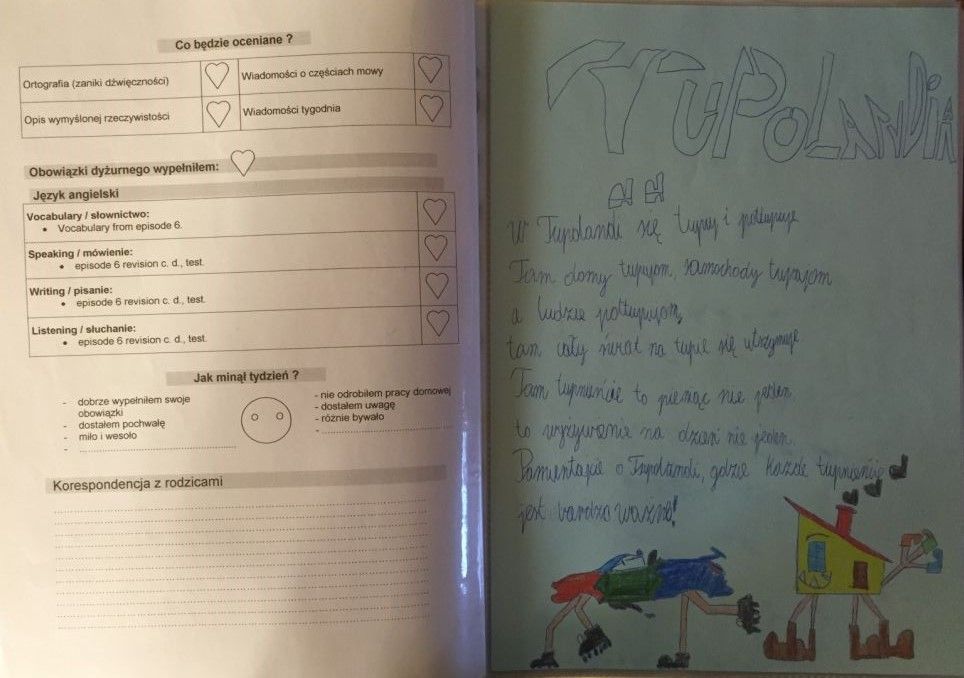 Co będzie oceniane ?
Ortografia (zaniki dźwięczności)
Wiadomości o częściach mowy
Opis wymyślonej rzeczywistości
Wiadomości tygodnia
Obowiązki dyżurnego wypełniłem:
Język angielski
Vocabulary / słownictwo:
• Vocabulary from episode 6.
Speaking / mówienie:
• episode 6 revision c. d., test.
Writing / pisanie:
• episode 6 revision c. d., test.
Listening / słuchanie:
• episode 6 revision c. d., test.
Jak minął tydzień ?
- dobrze wypełniłem swoje
obowiązki
- dostałem pochwałę
- miło i wesoło
-
- nie odrobiłem pracy domowej
- dostałem uwagę
- różnie bywało
-
Korespondencja z rodzicami
TUPOLANDIA
W Tupolandi się tupaj i potupuje
Tam domy tupujom, samochody tupajom
a ludzie potupujom,
tam cały świat na tupie się utrzymuje.
Tam tupnieńcie to pieniąc nie jeden
to wyżywienie na dzień nie jeden.
Pamientajcie o Tupolandi, gdzie każde tupnieńcie
jest bardzo ważne!